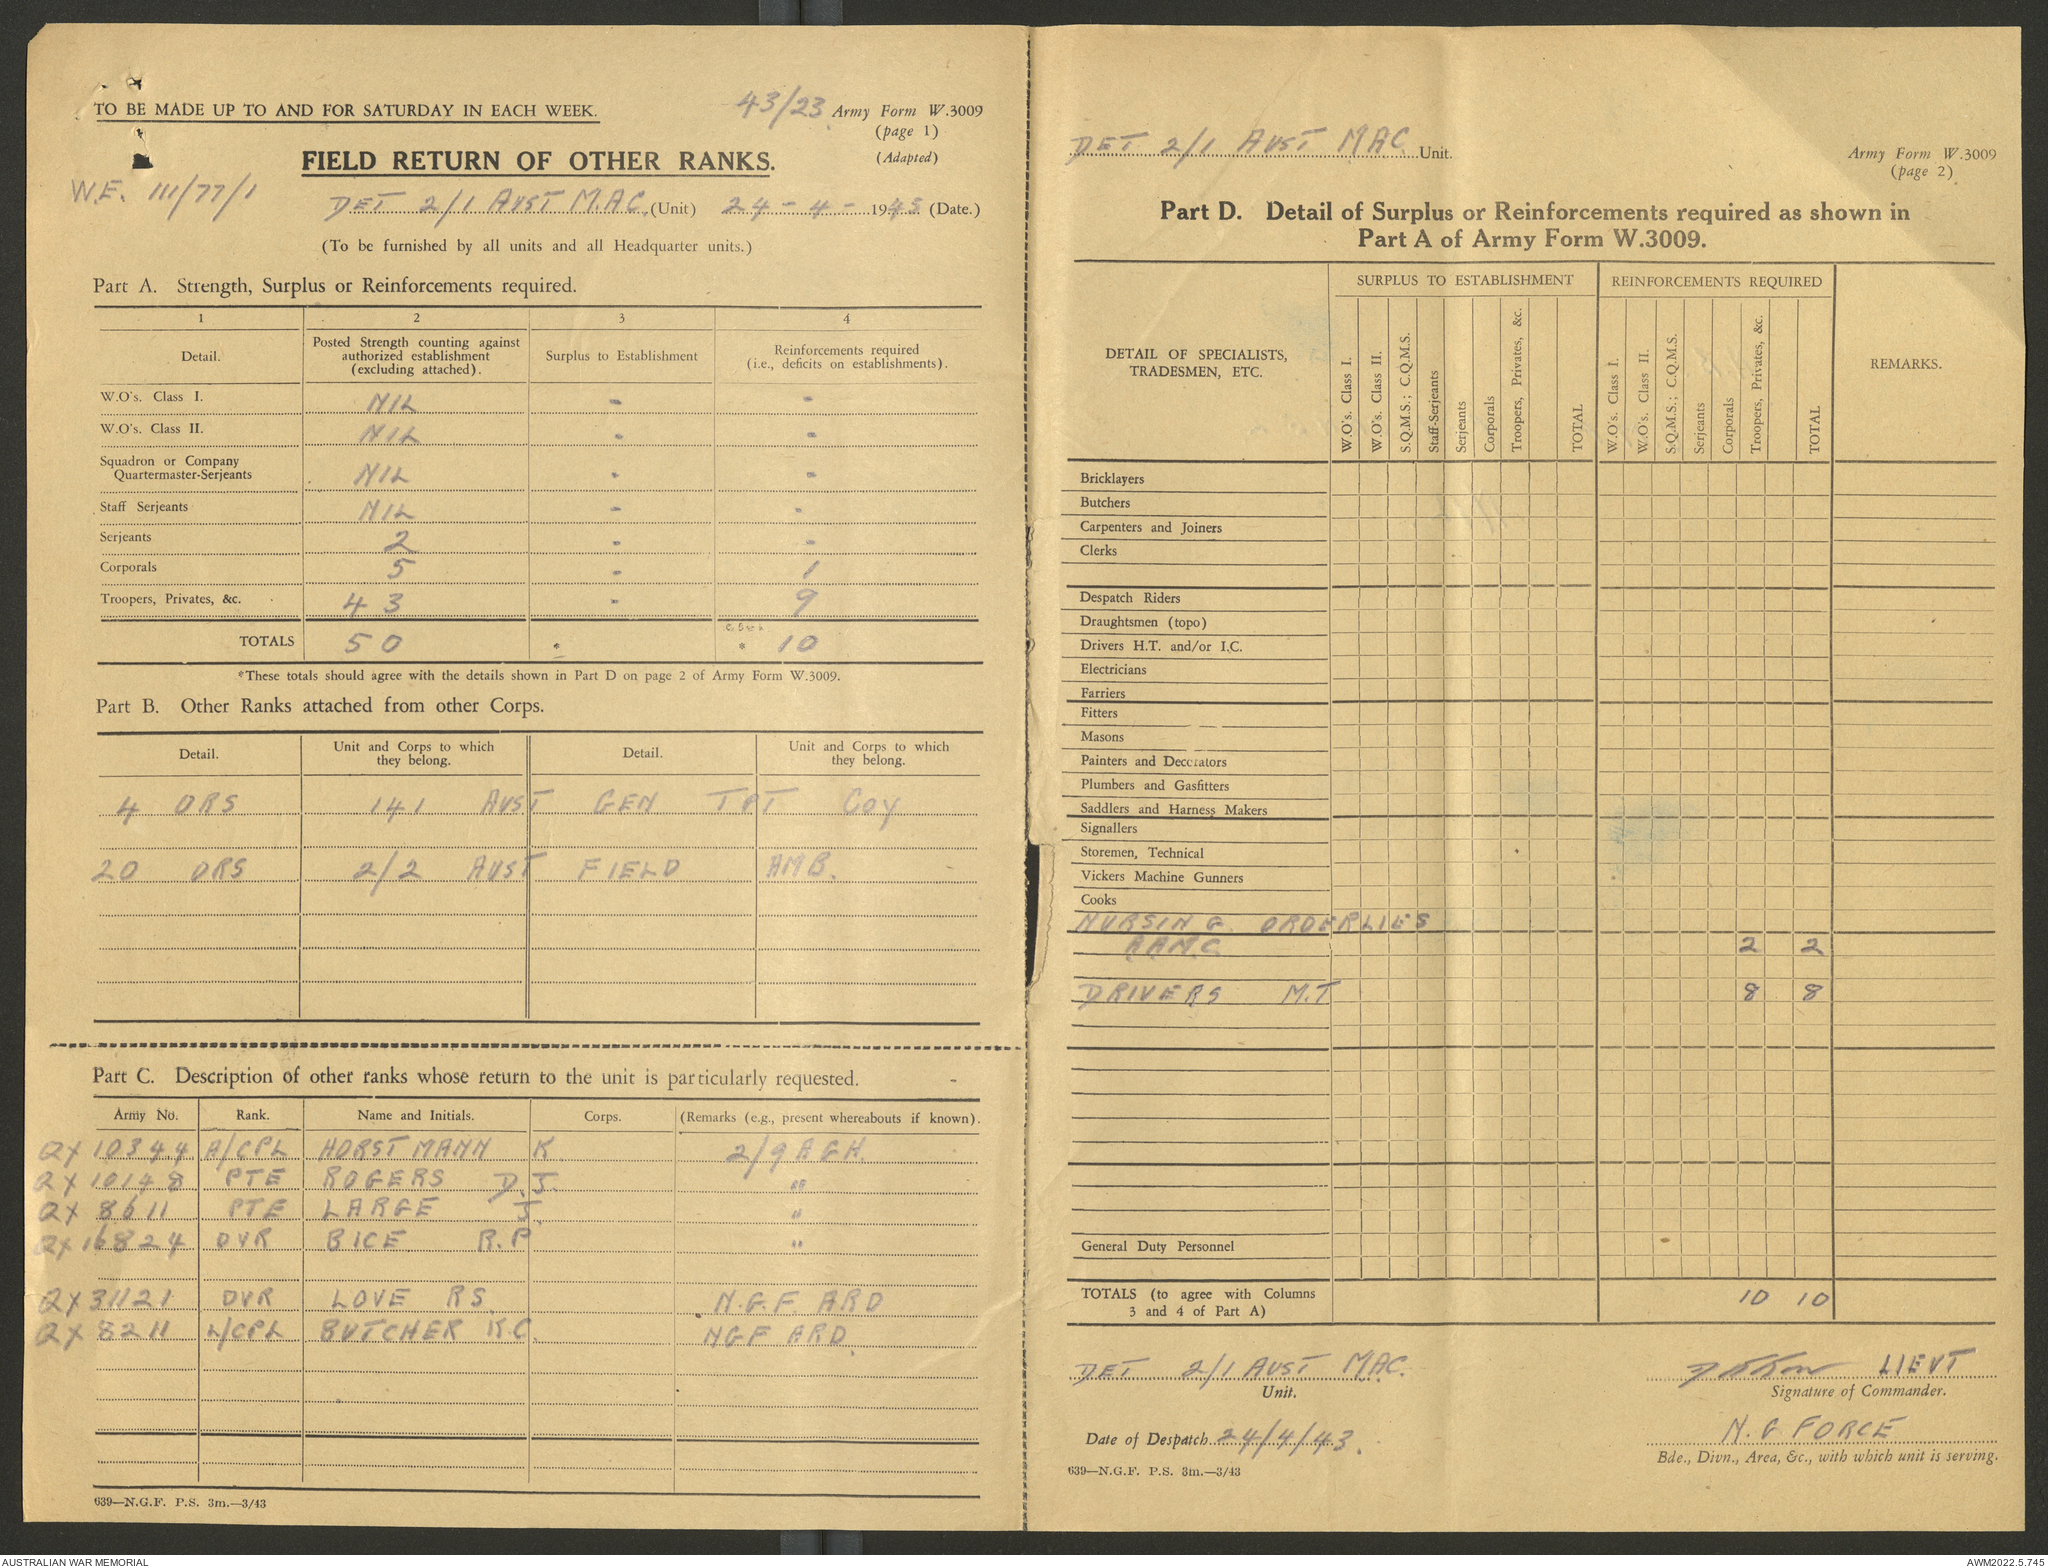 TO BE MADE UP TO AND FOR SATURDAY IN EACH WEEK.
43/23 Army Form W.3009
(page 1)
(Adapted)
FIELD RETURN OF OTHER RANKS.
W.E. 111/77/1
DET 2/1 AUST M.A.C. (Unit) 24-4-1943 (Date.)
(To be furnished by all units and all Headquarter units.)
Part A. Strength, Surplus or Reinforcements required.
1 2 3 4
Detail. Posted Strength counting against authorized establishment (excluding attached). Surplus to Establishment Reinforcements required (i.e., deficits on establishments).
W.O's. Class I. NIL - -
W.O's. Class II. NIL - -
Squadron or Company
Quartermaster-Serjeants NIL - -
Staff Serjeants NIL - -
Serjeants 2 - -
Corporals 5 - 1
Troopers, Privates, &c. 43 - 9
TOTALS 50 * * 10
*These totals should agree with the details shown in Part D on page 2 of Army Form W.3009.
Part B. Other Ranks attached from other Corps.
Detail. Unit and Corps to which they belong. Detail. Unit and Corps to which they belong.
4 ORS 141 AUST GEN TPT COY
20 ORS 2/2 AUST FIELD AMB.
Part C. Description of other ranks whose return to the unit is particularly requested.
Army No. Rank. Name and Initials. Corps. (Remarks (e.g., present whereabouts if known).
QX 10344 A/CPL HORSTMANN K. 2/9 AGH.
QX 10148 PTE ROGERS D.J. "
QX 8611 PTE LARGE J. "
QX 16824 DVR BICE R.P "
QX 31121 DVR LOVE RS. N.G.F. ARD
QX 8211 L/CPL BUTCHER K.C. NGF ARD.
639—N.G.F. P.S. 3m.—3/43
DET 2/1 AUST MAC. Unit.
Army Form W.3009
(page 2)
Part D. Detail of Surplus or Reinforcements required as shown in
Part A of Army Form W.3009.
SURPLUS TO ESTABLISHMENT REINFORCEMENTS REQUIRED
DETAIL OF SPECIALISTS,
TRADESMEN, ETC.
W.O's. Class I.
W.O's. Class II.
S.Q.M.S.; C.Q.M.S.
Staff-Serjeants
Serjeants
Corporals
Troopers, Privates, &c.
TOTAL
W.O's. Class I.
W.O's. Class II.
S.Q.M.S.; C.Q.M.S.
Serjeants
Corporals
Troopers, Privates, &c.
TOTAL
REMARKS.
Bricklayers
Butchers
Carpenters and Joiners
Clerks
Despatch Riders
Draughtsmen (topo)
Drivers H.T. and/or I.C.
Electricians
Farriers
Fitters
Masons
Painters and Decorators
Plumbers and Gasfitters
Saddlers and Harness Makers
Signallers
Storemen, Technical
Vickers Machine Gunners
Cooks
NURSING ORDERLIES
AAMC 2 2
DRIVERS M.T 8 8
General Duty Personnel
TOTALS (to agree with Columns
3 and 4 of Part A) 10 10
DET 2/1 AUST MAC.
Unit.
LIEUT
Signature of Commander.
Date of Despatch 24/4/43.
N.G FORCE
Bde., Divn., Area, &c., with which unit is serving.
639—N.G.F. P.S. 3m.—3/43
AUSTRALIAN WAR MEMORIAL
AWM2022.5.745